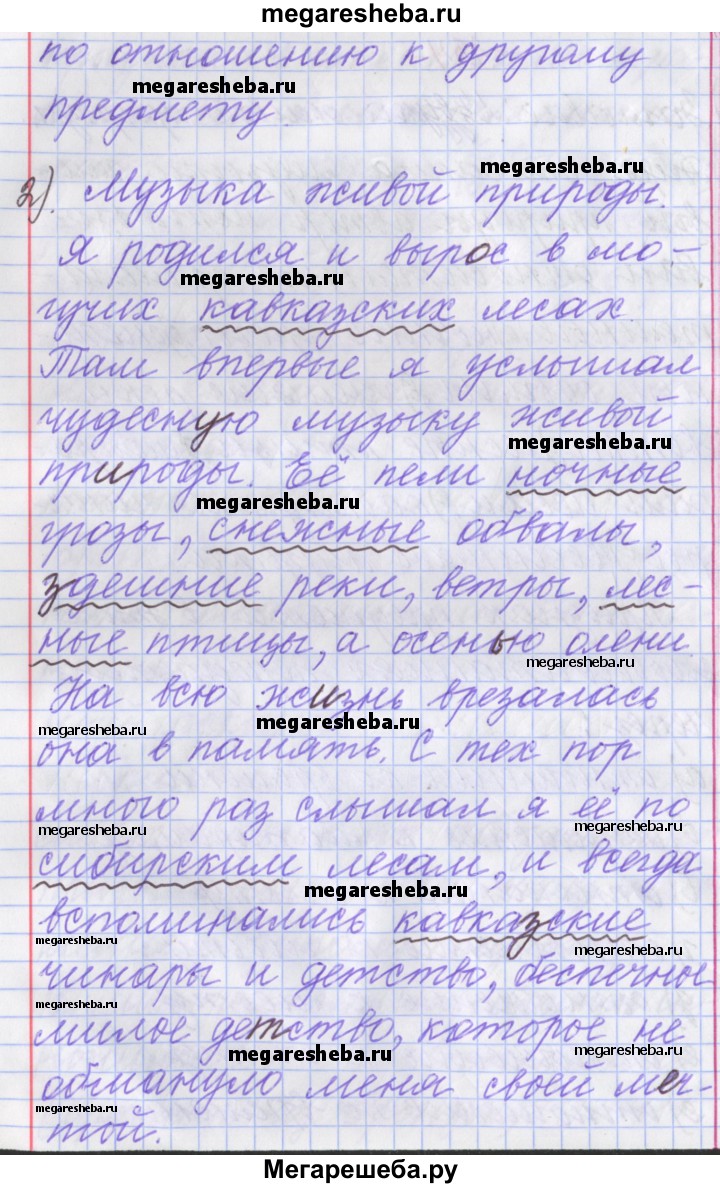 megaresheba.ru
по отношению к другому
megaresheba.ru
предмету.
megaresheba.ru
2). Музыка живой природы.
Я родился и вырос в мо-
megaresheba.ru
гучих кавказских лесах.
Там впервые я услышал
чудесную музыку живой
megaresheba.ru
природы. Её пели ночные
megaresheba.ru
грозы, снежные обвалы,
здешние реки, ветры, лес-
ные птицы, а осенью олени.
megaresheba.ru
На всю жизнь врезалась
megaresheba.ru megaresheba.ru
она в память. С тех пор
много раз слышал я её по
megaresheba.ru megaresheba.ru
сибирским лесам, и всегда
megaresheba.ru
вспоминались кавказские
megaresheba.ru megaresheba.ru
чинары и детство, беспечное
megaresheba.ru
милое детство, которое не
megaresheba.ru megaresheba.ru
обмануло меня своей меч-
megaresheba.ru
той.
Мегарешеба.ру